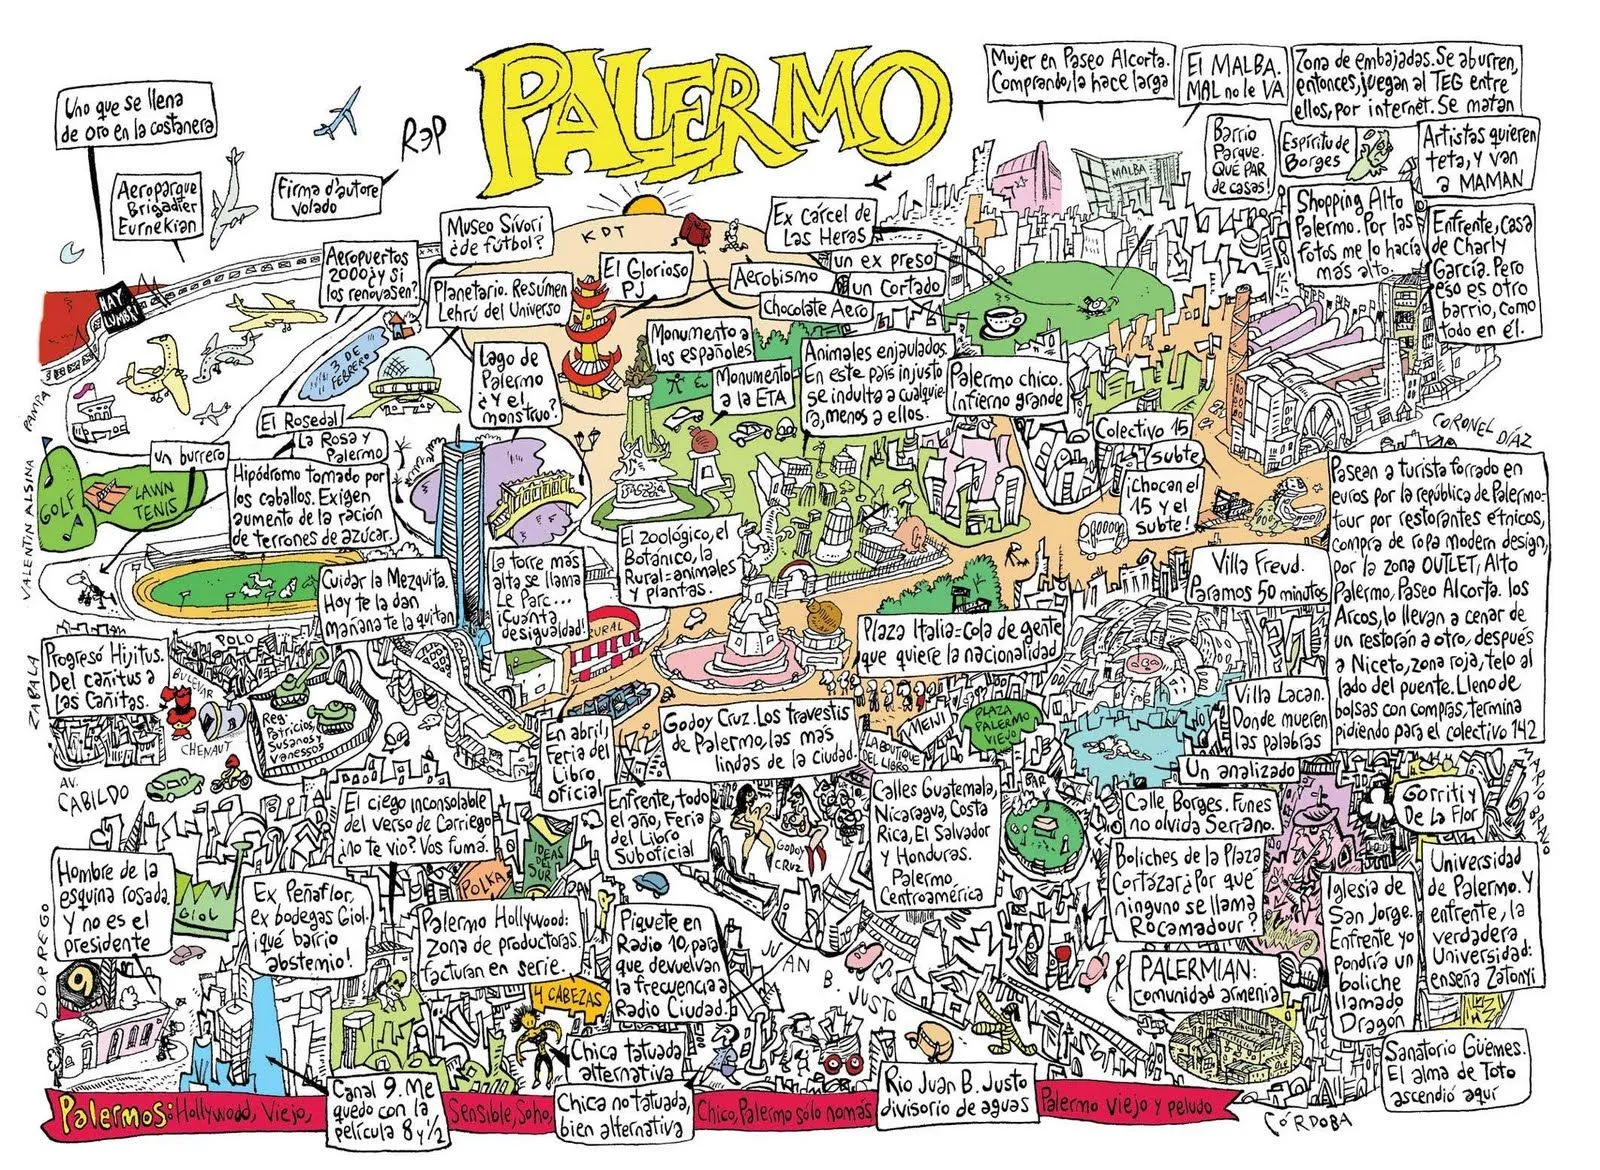 PALERMO
Uno que se llena
de oro en la costanera
Aeroparque
Brigadier
Eurnekian
Firma d'autore
volado
REP
Mujer en Paseo Alcorta.
Comprando, la hace larga
El MALBA.
MAL no le VA
Zona de embajadas. Se aburren,
entonces, juegan al TEG entre
ellos, por internet. Se matan
Barrio
Parque.
QUÉ PAR
de casas!
Espíritu de
Borges
Artistas quieren
teta, y van
a MAMAN
MALBA
Museo Sívori
¿de fútbol?
KDT
Ex cárcel de
Las Heras
un ex preso
un cortado
Shopping Alto
Palermo. Por las
fotos me lo hacía
más alto
Enfrente, casa
de Charly
García. Pero
eso es otro
barrio, como
todo en él.
Aeropuertos
2000 ¿y si
los renovasen?
Planetario. Resumen
Lehrú del Universo
El Glorioso
PJ
Aerobismo
Chocolate Aero
HAY
LUMBRI
3 DE
FEBRERO
Lago de
Palermo
¿Y el
monstruo?
Monumento a
los españoles
Monumento
a la ETA
Animales enjaulados.
En este país injusto
se indulta a cualquie-
ra, menos a ellos.
Palermo chico.
Infierno grande
PAMPA
El Rosedal
La Rosa y
Palermo
Colectivo 15
subte
¡Chocan el
15 y el
subte!
CORONEL DÍAZ
VALENTIN ALSINA
un burrero
GOLF
LAWN
TENIS
Hipódromo tomado por
los caballos. Exigen
aumento de la ración
de terrones de azúcar.
Pasean a turista forrado en
euros por la república de Palermo=
tour por restorantes étnicos,
compra de ropa modern design,
por la zona OUTLET, Alto
Palermo, Paseo Alcorta. Los
Arcos, lo llevan a cenar de
un restorán a otro, después
a Niceto, zona roja, telo al
lado del puente. Lleno de
bolsas con compras, termina
pidiendo para el colectivo 142
Cuidar la Mezquita.
Hoy te la dan
mañana te la quitan
La torre más
alta se llama
Le Parc...
¡Cuánta
desigualdad!
El zoológico, el
Botánico, la
Rural=animales
y plantas.
Villa Freud.
Paramos 50 minutos
RURAL
Plaza Italia=cola de gente
que quiere la nacionalidad
ZAPALA
Progresó Hijitus.
Del cañitus a
las Cañitas.
POLO
BULEVAR
CHENAUT
Reg.
Patricios,
Susanos y
vanessos
En abril,
Feria del
Libro
oficial
Godoy Cruz. Los travestis
de Palermo, las más
lindas de la ciudad.
MENÚ
LA BOUTIQUE
DEL LIBRO
PLAZA
PALERMO
VIEJO
Villa Lacan.
Donde mueren
las palabras
Un analizado
AV.
CABILDO
El ciego inconsolable
del verso de Carriego
¿no te vio? Vos fuma.
Enfrente, todo
el año, Feria
del Libro
Suboficial
GODOY
CRUZ
Calles Guatemala,
Nicaragua, Costa
Rica, El Salvador
y Honduras.
Palermo
Centroamérica
BAR
Calle Borges. Funes
no olvida Serrano.
Gorriti y
De La Flor
Hombre de la
esquina rosada.
Y no es el
presidente
GIOL
Ex Peñaflor,
ex bodegas Giol.
¡qué barrio
abstemio!
POLKA
IDEAS
DEL
SUR
Palermo Hollywood:
zona de productoras.
facturan en serie.
Piquete en
Radio 10, para
que devuelvan
la frecuencia a
Radio Ciudad.
Boliches de la Plaza
Cortázar ¿Por qué
ninguno se llama
Rocamadour?
Iglesia de
San Jorge.
Enfrente yo
pondría un
boliche
llamado
Dragón
Universidad
de Palermo. Y
enfrente, la
verdadera
Universidad:
enseña Zatonyi
DORREGO
9
JUAN B. JUSTO
4 CABEZAS
PALERMIAN:
comunidad armenia
Canal 9. Me
quedo con la
película 8 y 1/2
Chica tatuada
alternativa
Chica no tatuada,
bien alternativa
Río Juan B. Justo
divisorio de aguas
Sanatorio Güemes.
El alma de Toto
ascendió aquí
Palermos: Hollywood, Viejo,
Sensible, Soho,
Chico, Palermo sólo nomás
Palermo viejo y peludo
CÓRDOBA